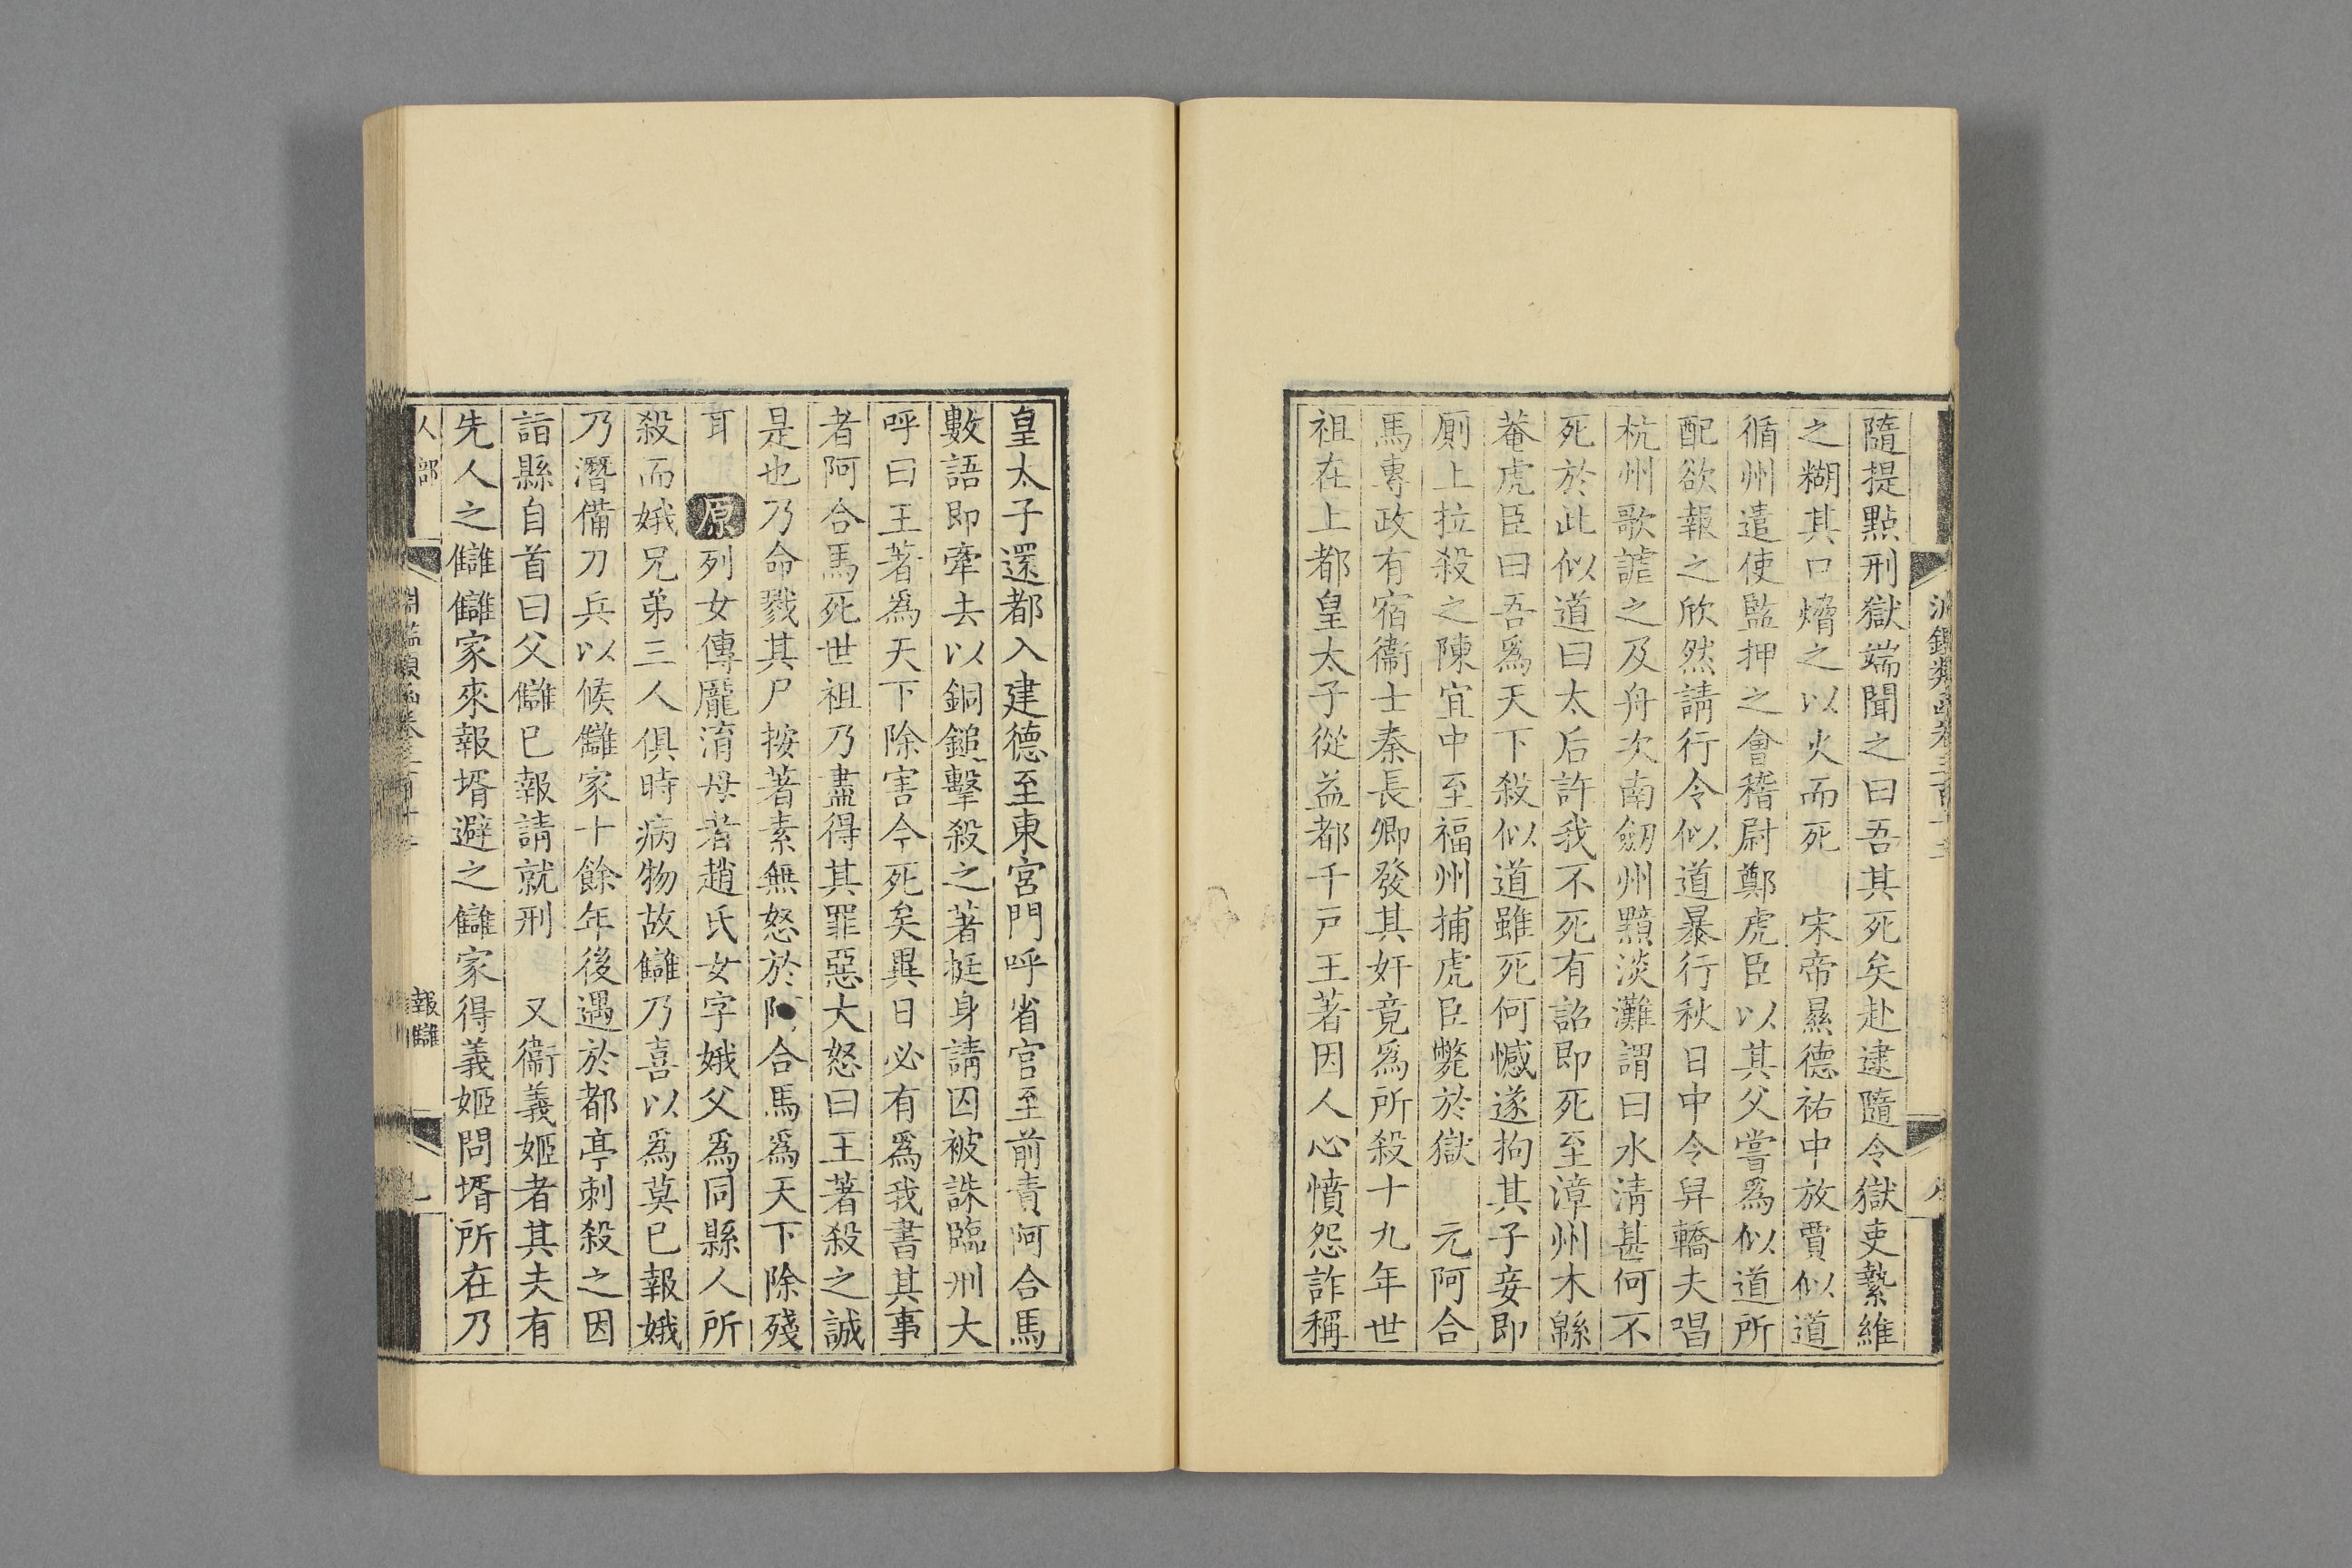 隨提點刑獄端聞之曰吾其死矣赴逮隨令獄吏縶維
之糊其口熁之以火而死　宋帝㬎德祐中放賈似道
循州遣使監押之會稽尉鄭虎臣以其父嘗爲似道所
配欲報之欣然請行令似道暴行秋日中令舁轎夫唱
杭州歌謔之及舟次南劒州黯淡灘謂曰水淸甚何不
死於此似道曰太后許我不死有詔即死至漳州木緜
菴虎臣曰吾爲天下殺似道雖死何憾遂拘其子妾即
厠上拉殺之陳宜中至福州捕虎臣斃於獄　元阿合
馬專政有宿衞士秦長卿發其奸竟爲所殺十九年世
祖在上都皇太子從益都千戸王著因人心憤怨詐稱
皇太子還都入建德至東宮門呼省官至前責阿合馬
數語即牽去以銅鎚擊殺之著挺身請囚被誅臨刑大
呼曰王著爲天下除害今死矣異日必有爲我書其事
者阿合馬死世祖乃盡得其罪惡大怒曰王著殺之誠
是也乃命戮其尸按著素無怒於阿合馬爲天下除殘
耳　原列女傳龎淯母者趙氏女字娥父爲同縣人所
殺而娥兄弟三人俱時病物故讎乃喜以爲莫已報娥
乃潛備刀兵以候讎家十餘年後遇於都亭刺殺之因
詣縣自首曰父讎已報請就刑　又衞義姬者其夫有
先人之讎讎家來報壻避之讎家得義姬問壻所在乃
人部
報讎